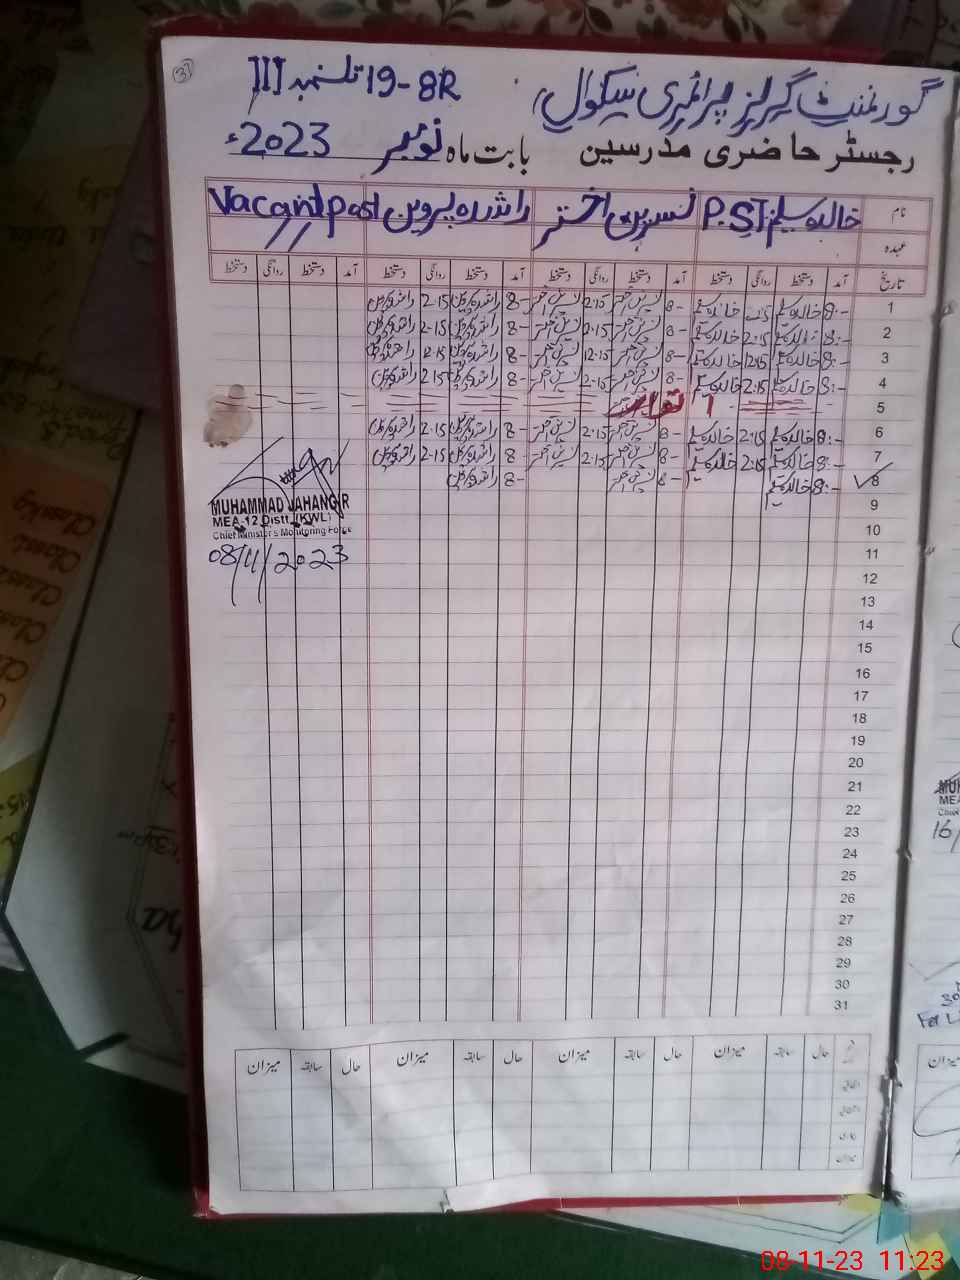 31
گورنمنٹ گرلز پرائمری سکول 19-8R تلمبہ III
رجسٹر حاضری مدرسین بابت ماہ نومبر 2023ء
نام خالدہ سلیم P.ST نسرین اختر راشدہ پروین Vacant Post
عہدہ
تاریخ آمد دستخط روانگی دستخط آمد دستخط روانگی دستخط آمد دستخط روانگی دستخط آمد دستخط روانگی دستخط
1 8:- خالدہ سلیم 2:15 خالدہ سلیم 8- نسرین اختر 2.15 نسرین اختر 8- راشدہ پروین 2.15 راشدہ پروین
2 8:- خالدہ سلیم 2:15 خالدہ سلیم 8- نسرین اختر 2.15 نسرین اختر 8- راشدہ پروین 2.15 راشدہ پروین
3 8:- خالدہ سلیم 12:15 خالدہ سلیم 8- نسرین اختر 12.15 نسرین اختر 8- راشدہ پروین 12.15 راشدہ پروین
4 8:- خالدہ سلیم 2:15 خالدہ سلیم 8- نسرین اختر 2.15 نسرین اختر 8- راشدہ پروین 2.15 راشدہ پروین
5 اتوار
6 8:- خالدہ سلیم 2:15 خالدہ سلیم 8- نسرین اختر 2.15 نسرین اختر 8- راشدہ پروین 2.15 راشدہ پروین
7 8:- خالدہ سلیم 2:15 خالدہ سلیم 8- نسرین اختر 2.15 نسرین اختر 8- راشدہ پروین 2.15 راشدہ پروین
8 8:- خالدہ سلیم 8- نسرین اختر 8- راشدہ پروین
MUHAMMAD JAHANGIR
MEA-12 Distt. (KWL)
Chief Minister's Monitoring Force
08/11/2023
9
10
11
12
13
14
15
16
17
18
19
20
21
22
23
24
25
26
27
28
29
30
31
حال سابقہ میزان حال سابقہ میزان حال سابقہ میزان حال سابقہ میزان
08-11-23 11:23